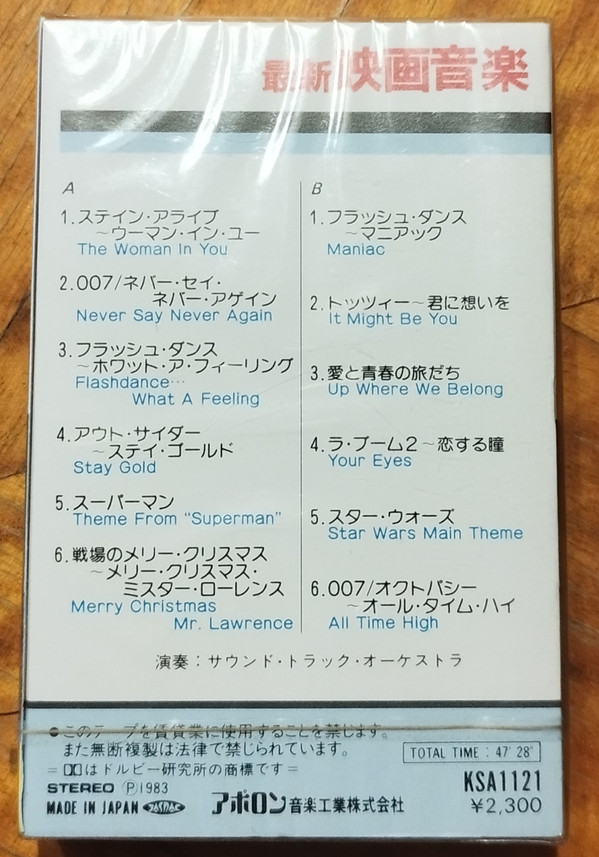 最新映画音楽
A
1.ステイン・アライブ
～ウーマン・イン・ユー
The Woman In You
2.007/ネバー・セイ・
ネバー・アゲイン
Never Say Never Again
3.フラッシュ・ダンス
～ホワット・ア・フィーリング
Flashdance…
What A Feeling
4.アウト・サイダー
～ステイ・ゴールド
Stay Gold
5.スーパーマン
Theme From “Superman”
6.戦場のメリー・クリスマス
～メリー・クリスマス・
ミスター・ローレンス
Merry Christmas
Mr. Lawrence
B
1.フラッシュ・ダンス
～マニアック
Maniac
2.トッツィー～君に想いを
It Might Be You
3.愛と青春の旅だち
Up Where We Belong
4.ラ・ブーム2～恋する瞳
Your Eyes
5.スター・ウォーズ
Star Wars Main Theme
6.007/オクトパシー
～オール・タイム・ハイ
All Time High
演奏：サウンド・トラック・オーケストラ
●このテープを賃貸業に使用することを禁じます。
また無断複製は法律で禁じられています。
＝ はドルビー研究所の商標です＝
STEREO Ⓟ1983
MADE IN JAPAN JASRAC
アポロン音楽工業株式会社
TOTAL TIME : 47' 28"
KSA1121
¥2,300